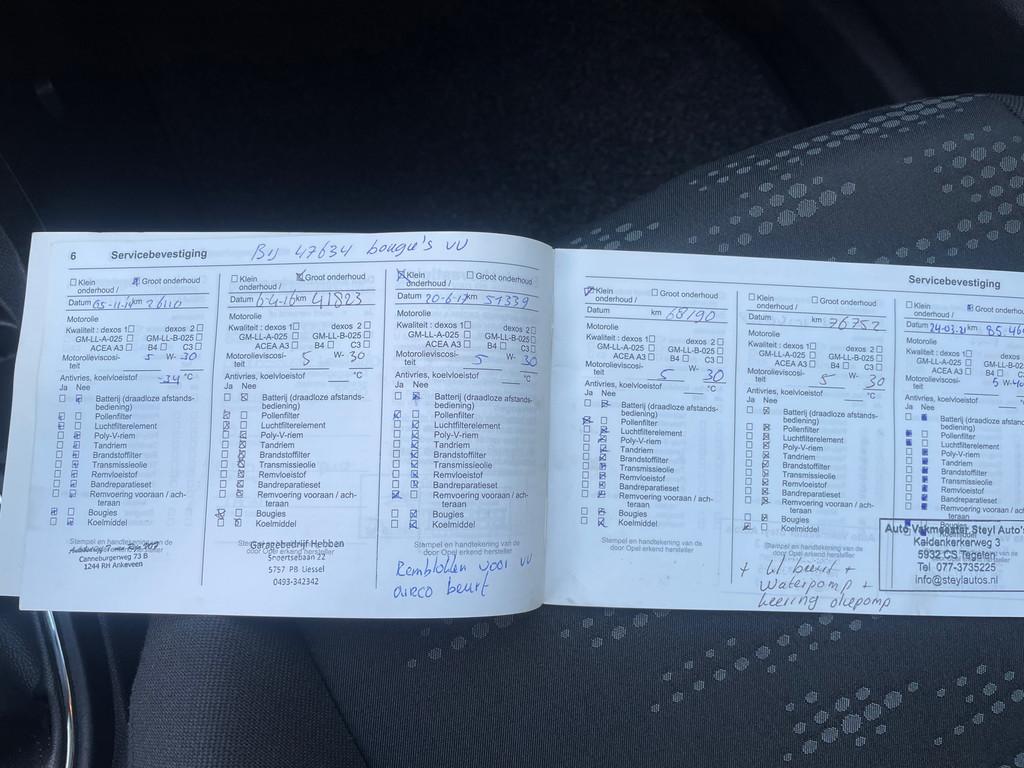 6 Servicebevestiging Bij 47634 bougie's vv
☐ Klein onderhoud / ☒ Groot onderhoud
Datum 05-11-14 km 26110
Motorolie
Kwaliteit : dexos 1☐ dexos 2☐
GM-LL-A-025 ☐ GM-LL-B-025☐
ACEA A3 ☐ B4 ☐ C3☐
Motorolieviscosi-teit 5 W- 30
Antivries, koelvloeistof -34 °C
Ja Nee
Batterij (draadloze afstands-
bediening)
Pollenfilter
Luchtfilterelement
Poly-V-riem
Tandriem
Brandstoffilter
Transmissieolie
Remvloeistof
Bandreparatieset
Remvoering vooraan / ach-
teraan
Bougies
Koelmiddel
Canneburgerweg 73 B
1244 RH Ankeveen
☐ Klein onderhoud / ☒ Groot onderhoud
Datum 6-4-16 km 41823
Motorolie
Kwaliteit : dexos 1☐ dexos 2 ☐
GM-LL-A-025 ☐ GM-LL-B-025☐
ACEA A3 ☐ B4 ☐ C3 ☐
Motorolieviscosi-teit 5 W- 30
Antivries, koelvloeistof °C
Ja Nee
Batterij (draadloze afstands-
bediening)
Pollenfilter
Luchtfilterelement
Poly-V-riem
Tandriem
Brandstoffilter
Transmissieolie
Remvloeistof
Bandreparatieset
Remvoering vooraan / ach-
teraan
Bougies
Koelmiddel
Garagebedrijf Hebben
Snoertsebaan 22
5757 PB Liessel
0493-342342
☒ Klein onderhoud / ☐ Groot onderhoud
Datum 20-6-17 km 51339
Motorolie
Kwaliteit : dexos 1☐ dexos 2☐
GM-LL-A-025 ☐ GM-LL-B-025☐
ACEA A3 ☐ B4 ☐ C3☐
Motorolieviscosi-teit 5 W- 30
Antivries, koelvloeistof °C
Ja Nee
Batterij (draadloze afstands-
bediening)
Pollenfilter
Luchtfilterelement
Poly-V-riem
Tandriem
Brandstoffilter
Transmissieolie
Remvloeistof
Bandreparatieset
Remvoering vooraan / ach-
teraan
Bougies
Koelmiddel
Stempel en handtekening van de
door Opel erkend hersteller
Remblokken voor vv
airco beurt
Servicebevestiging
☒ Klein onderhoud / ☐ Groot onderhoud
Datum km 68190
Motorolie
Kwaliteit : dexos 1☐ dexos 2☐
GM-LL-A-025 ☐ GM-LL-B-025☐
ACEA A3 ☐ B4 ☐ C3☐
Motorolieviscosi-teit 5 W- 30
Antivries, koelvloeistof °C
Ja Nee
Batterij (draadloze afstands-
bediening)
Pollenfilter
Luchtfilterelement
Poly-V-riem
Tandriem
Brandstoffilter
Transmissieolie
Remvloeistof
Bandreparatieset
Remvoering vooraan / ach-
teraan
Bougies
Koelmiddel
Stempel en handtekening van de
door Opel erkend hersteller
☐ Klein onderhoud / ☐ Groot onderhoud
Datum km 76752
Motorolie
Kwaliteit : dexos 1☐ dexos 2☐
GM-LL-A-025 ☐ GM-LL-B-025☐
ACEA A3 ☐ B4 ☐ C3☐
Motorolieviscosi-teit 5 W- 30
Antivries, koelvloeistof °C
Ja Nee
Batterij (draadloze afstands-
bediening)
Pollenfilter
Luchtfilterelement
Poly-V-riem
Tandriem
Brandstoffilter
Transmissieolie
Remvloeistof
Bandreparatieset
Remvoering vooraan / ach-
teraan
Bougies
Koelmiddel
beurt +
Waterpomp +
keering oliepomp
☐ Klein onderhoud / ☒ Groot onderhoud
Datum 24-03.21 km 85.460
Motorolie
Kwaliteit : dexos 1☐ dexos 2
GM-LL-A-025 ☐ GM-LL-B-02
ACEA A3 ☐ B4 ☐ C3
Motorolieviscosi-teit 5 W-40
Antivries, koelvloeistof
Ja Nee
Batterij (draadloze afstands-
bediening)
Pollenfilter
Luchtfilterelement
Poly-V-riem
Tandriem
Brandstoffilter
Transmissieolie
Remvloeistof
Bandreparatieset
Remvoering vooraan / ach-
teraan
Bougies
Auto Vakmeester Steyl Auto's
Kaldenkerkerweg 3
5932 CS Tegelen
Tel 077-3735225
info@steylautos.nl